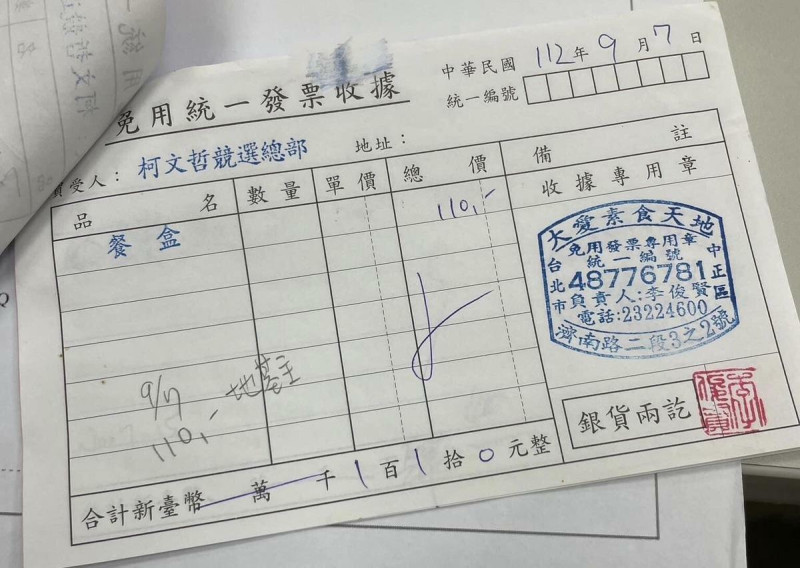 免用統一發票收據
中華民國 112年 9月 7日
統一編號
買受人： 柯文哲競選總部 地址：
品名 數量 單價 總價 備註
餐盒 110,-
收據專用章
大愛素食天地
免用發票專用章
統一編號
48776781
負責人:李俊賢
電話:23224600
台北市 中正區
濟南路二段3之2號
9/7
110,-
銀貨兩訖
合計新臺幣 萬 千 1百 1拾 0元整